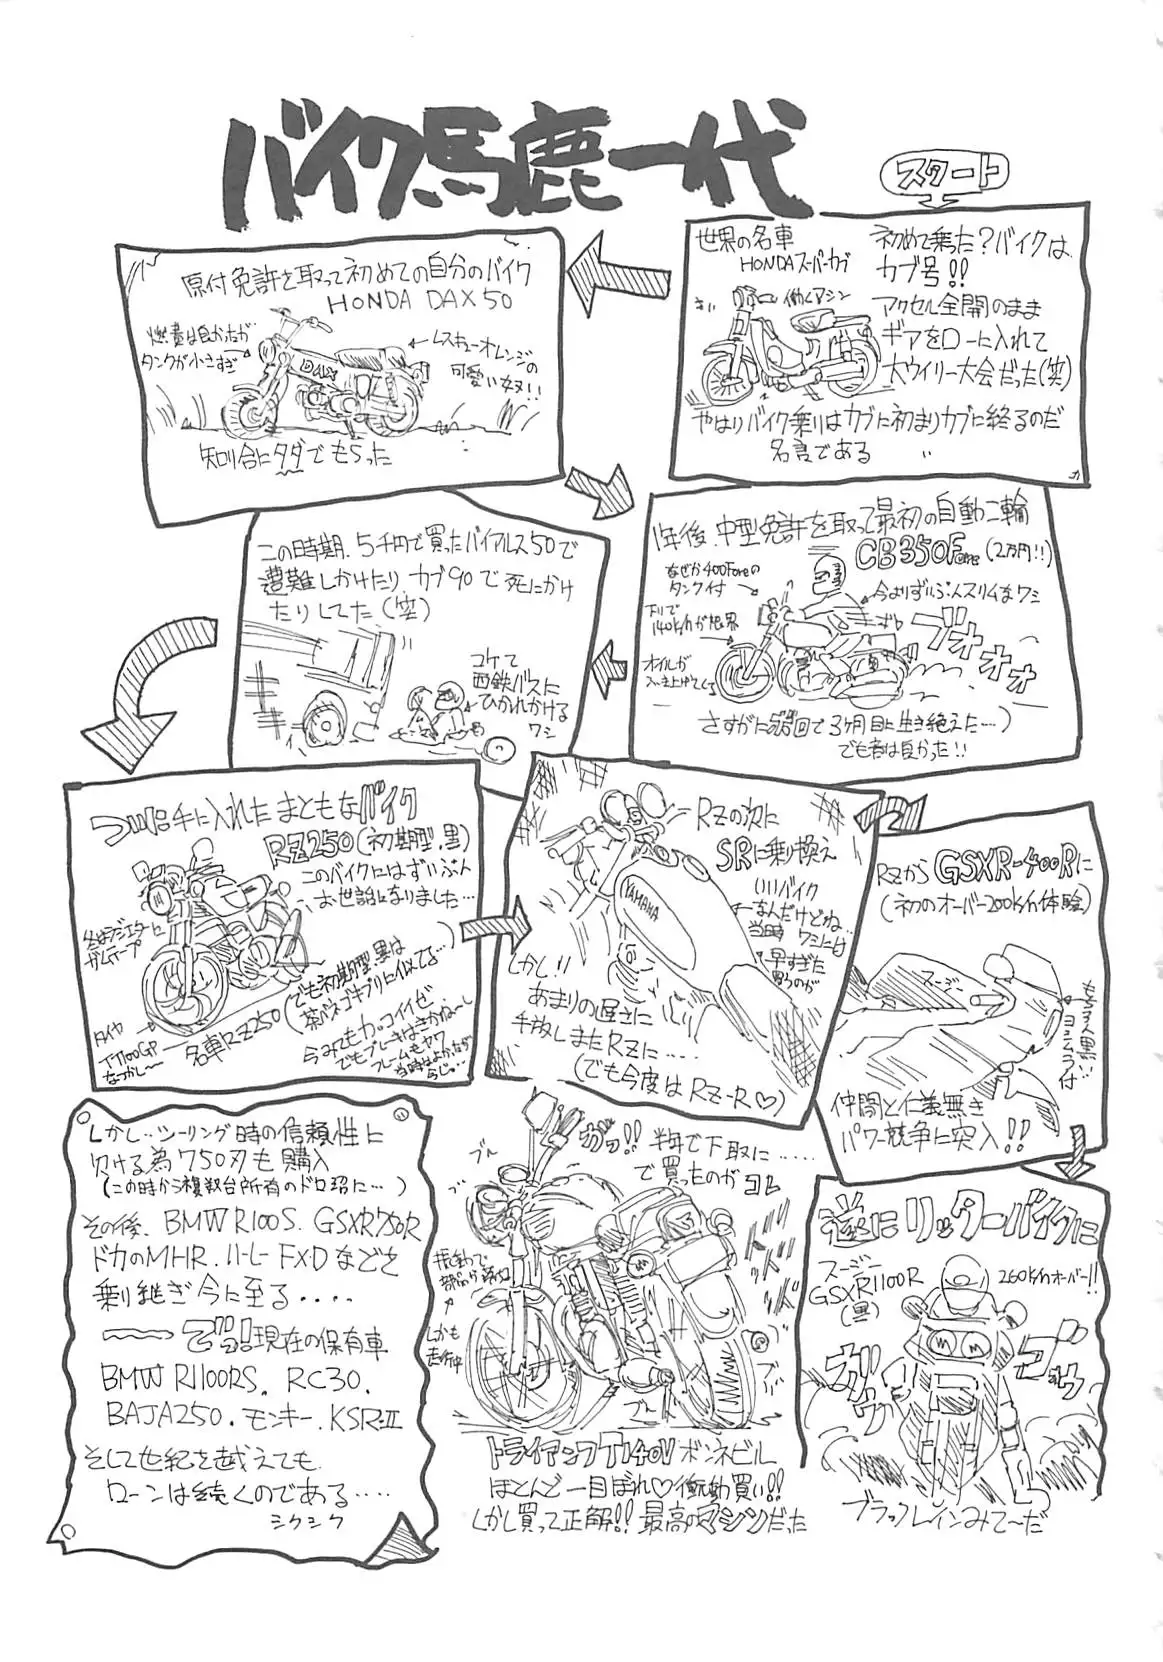 バイク馬鹿一代
スタート
世界の名車
HONDAスーパーカブ
初めて乗った?バイクは
カブ号!!
働くマシン
アクセル全開のまま
ギアをローに入れて
大ウイリー大会だった(笑)
やはりバイク乗りはカブに初まりカブに終るのだ
名言である
原付免許を取って初めての自分のバイク
HONDA DAX50
燃費は良かったが
タンクが小さすぎ
DAX
レスキューオレンジの
可愛い奴!!
知り合いにタダでもらった
1年後、中型免許を取って最初の自動二輪
CB350Four(2万円!!)
なぜか400Fourの
タンク付
今よりずいぶんスリムなワシ
下りで
140k/hが限界
ブォォォォ
オイルが
さすがに3ヶ月目に生き絶えた…)
でも音は良かった!!
この時期、5千円で買ったバイアルス50で
遭難しかけたり カブ90で死にかけ
たりしてた(笑)
コケて
西鉄バスに
ひかれかける
ワシ
つい手に入れたまともなバイク
RZ250(初期型.黒)
このバイクにはずいぶん
お世話になりました…
タイヤ
TT100GP
なつかし〜
名車RZ250
でも初期型黒は
茶バネゴキブリに似てる…
今みてもカッコイイぜ
でもブレーキはきかね〜し
フレームもヤワ
RZの次に
SRに乗り換え
いいバイク
なんだけどね…
当時 ワシには
早すぎた
YAMAHA
しかし!!
あまりの遅さに
手放しまたRZに……
(でも今度はRZ-R♡)
RZからGSXR-400Rに
(初のオーバー200k/h体験)
スージー
ヨシムラ付
仲間と仁義無き
パワー競争に突入!!
遂にリッターバイクに
スージー
GSXR1100R
(黒)
260k/hオーバー!!
ゴゥゥ
ブラックレインみて〜だ
半年で下取に……
で買ったのがコレ
ガッ!!
ブル
ブ
ドド
振動で
しかも
走行中
トライアンフT140Vボンネビル
ほとんど一目ぼれ♡衝動買い!!
しかし買って正解!! 最高のマシンだった
しかし…ツーリング時の信頼性に
欠ける為750刀も購入
(この時から複数台所有のドロ沼に…)
その後、BMWR100S、GSXR750R
ドカのMHR、ハーレーFXDなどを
乗り継ぎ今に至る・・・・
〜でっ!現在の保有車
BMW R1100RS. RC30.
BAJA250.モンキー.KSR-II
そして世紀を越えても
ローンは続くのである・・・・
シクシク